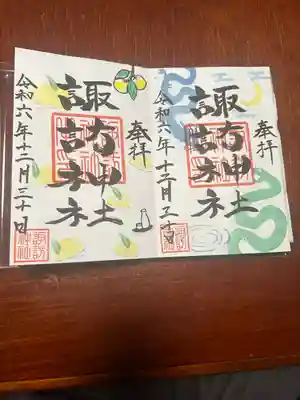 奉拝
諏訪神社
令和六年十二月三十日
諏訪神社
奉拝
諏訪神社
令和六年十二月三十日